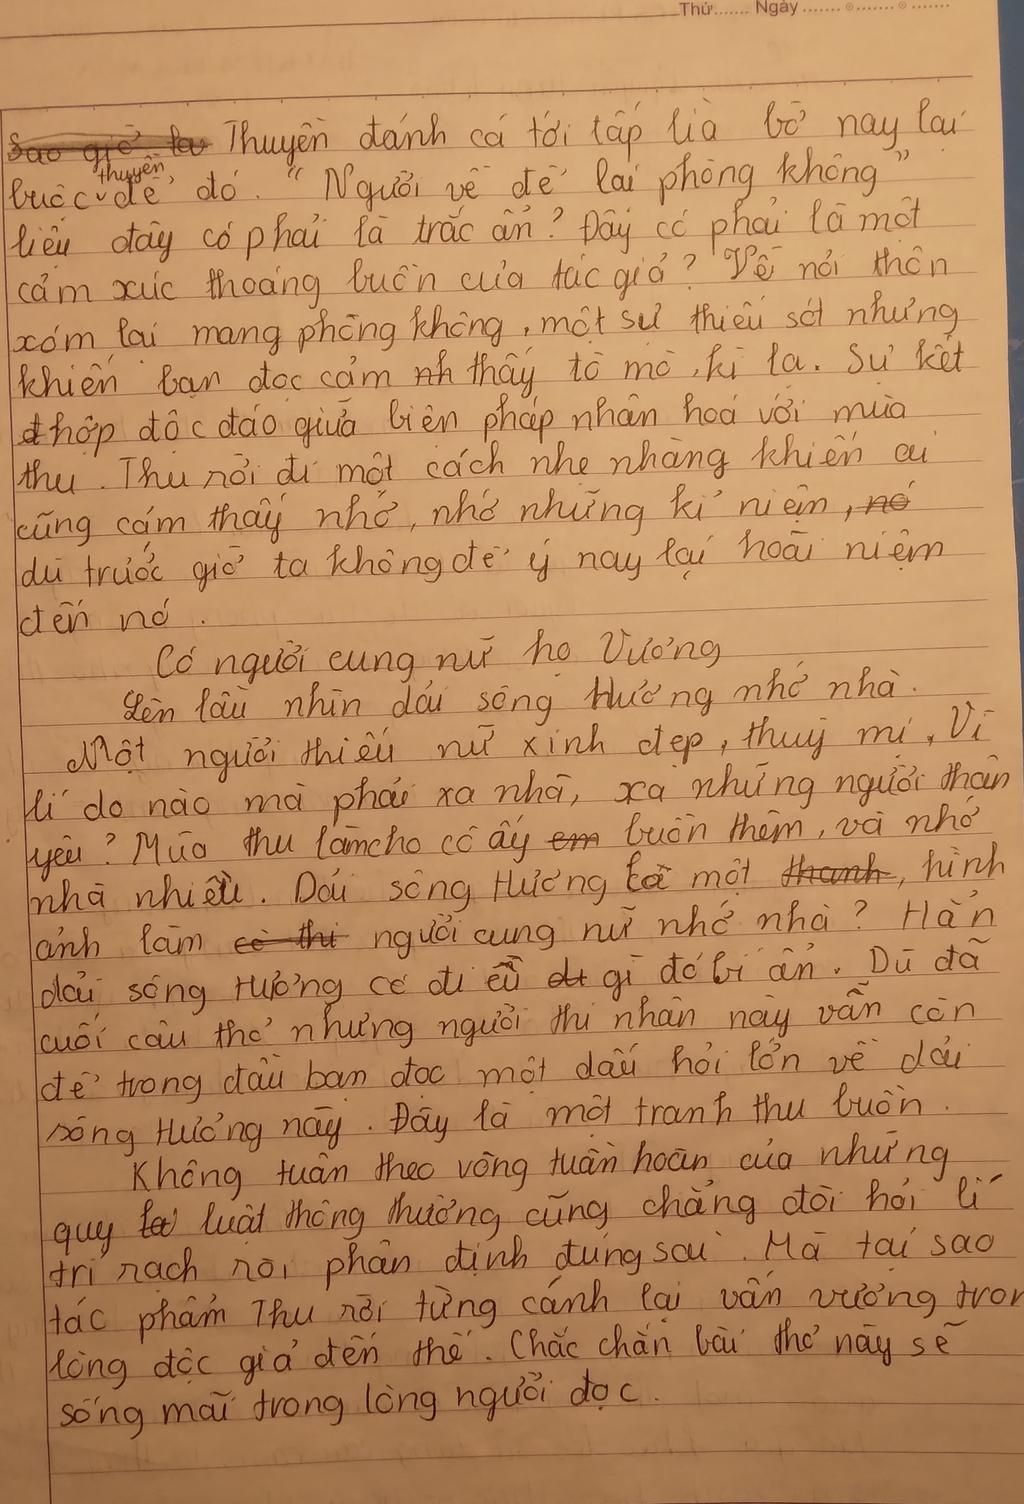 Thứ....... Ngày .......................
Sao giờ ta Thuyền đánh cá tới tấp lìa bờ nay lại
buộc thuyền để đó. "Người về để lại phòng không"
liệu đây có phải là trắc ẩn? Đây có phải là một
cảm xúc thoáng buồn của tác giả? Về nơi thôn
xóm lại mang phòng không, một sự thiếu sót nhưng
khiến bạn đọc cảm nh thấy tò mò, kì lạ. Sự kết
đ hợp độc đáo giữa biện pháp nhân hoá với mùa
thu. Thu rơi đi một cách nhẹ nhàng khiến ai
cũng cảm thấy nhớ, nhớ những kỉ niệm, nó
dù trước giờ ta không để ý nay lại hoài niệm
đến nó.
Có người cung nữ họ Vương
Lên lầu nhìn dải sông Hương nhớ nhà.
Một người thiếu nữ xinh đẹp, thuỳ mị, Vì
lí do nào mà phải xa nhà, xa những người thân
yêu? Mùa thu làm cho cô ấy em buồn thêm, và nhớ
nhà nhiều. Dải sông Hương là một thanh, hình
ảnh làm cô thi người cung nữ nhớ nhà? Hẳn
dải sông Hương có điều gì đó bí ẩn. Dù đã
cuối câu thơ nhưng người thi nhân này vẫn còn
để trong đầu bạn đọc một dấu hỏi lớn về dải
sông Hương này. Đây là một tranh thu buồn.
Không tuân theo vòng tuần hoàn của những
quy luật thông thường cũng chẳng đòi hỏi lí
trí rạch ròi phân định đúng sai. Mà tại sao
tác phẩm Thu rơi từng cánh lại vấn vương tron
lòng độc giả đến thế. Chắc chắn bài thơ này sẽ
sống mãi trong lòng người đọc.